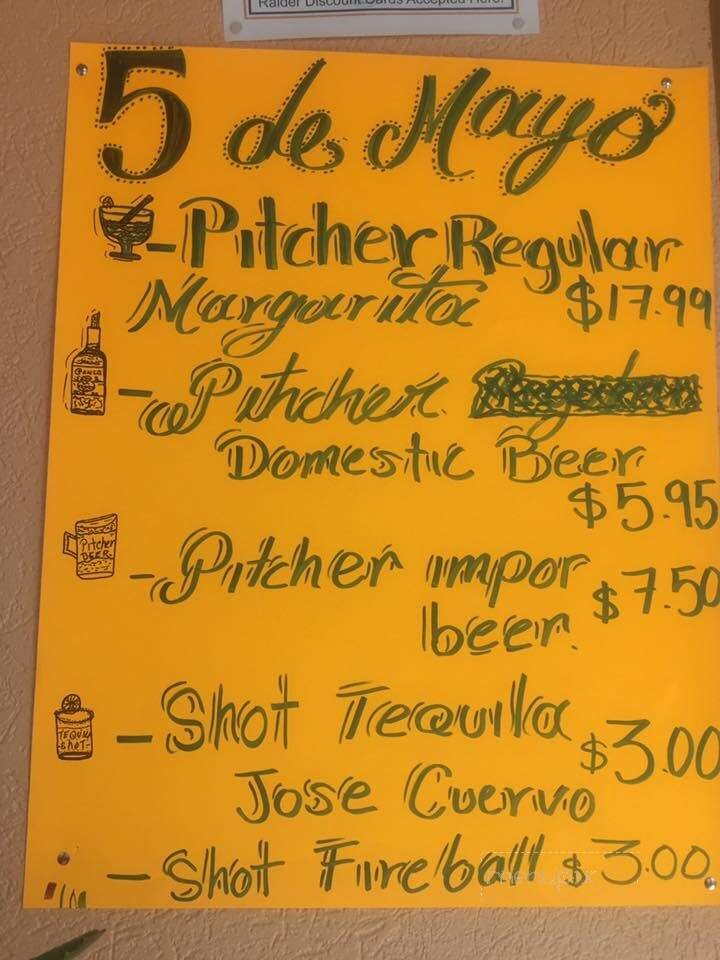 Raider Discount Cards Accepted Here.
5 de Mayo
- Pitcher Regular
Margarita $17.99
- Pitcher
Domestic Beer
$5.95
Pitcher
BEER
- Pitcher impor
beer. $7.50
TEQUILA
SHOT
- Shot Tequila
$3.00
Jose Cuervo
- Shot Fireball $3.00